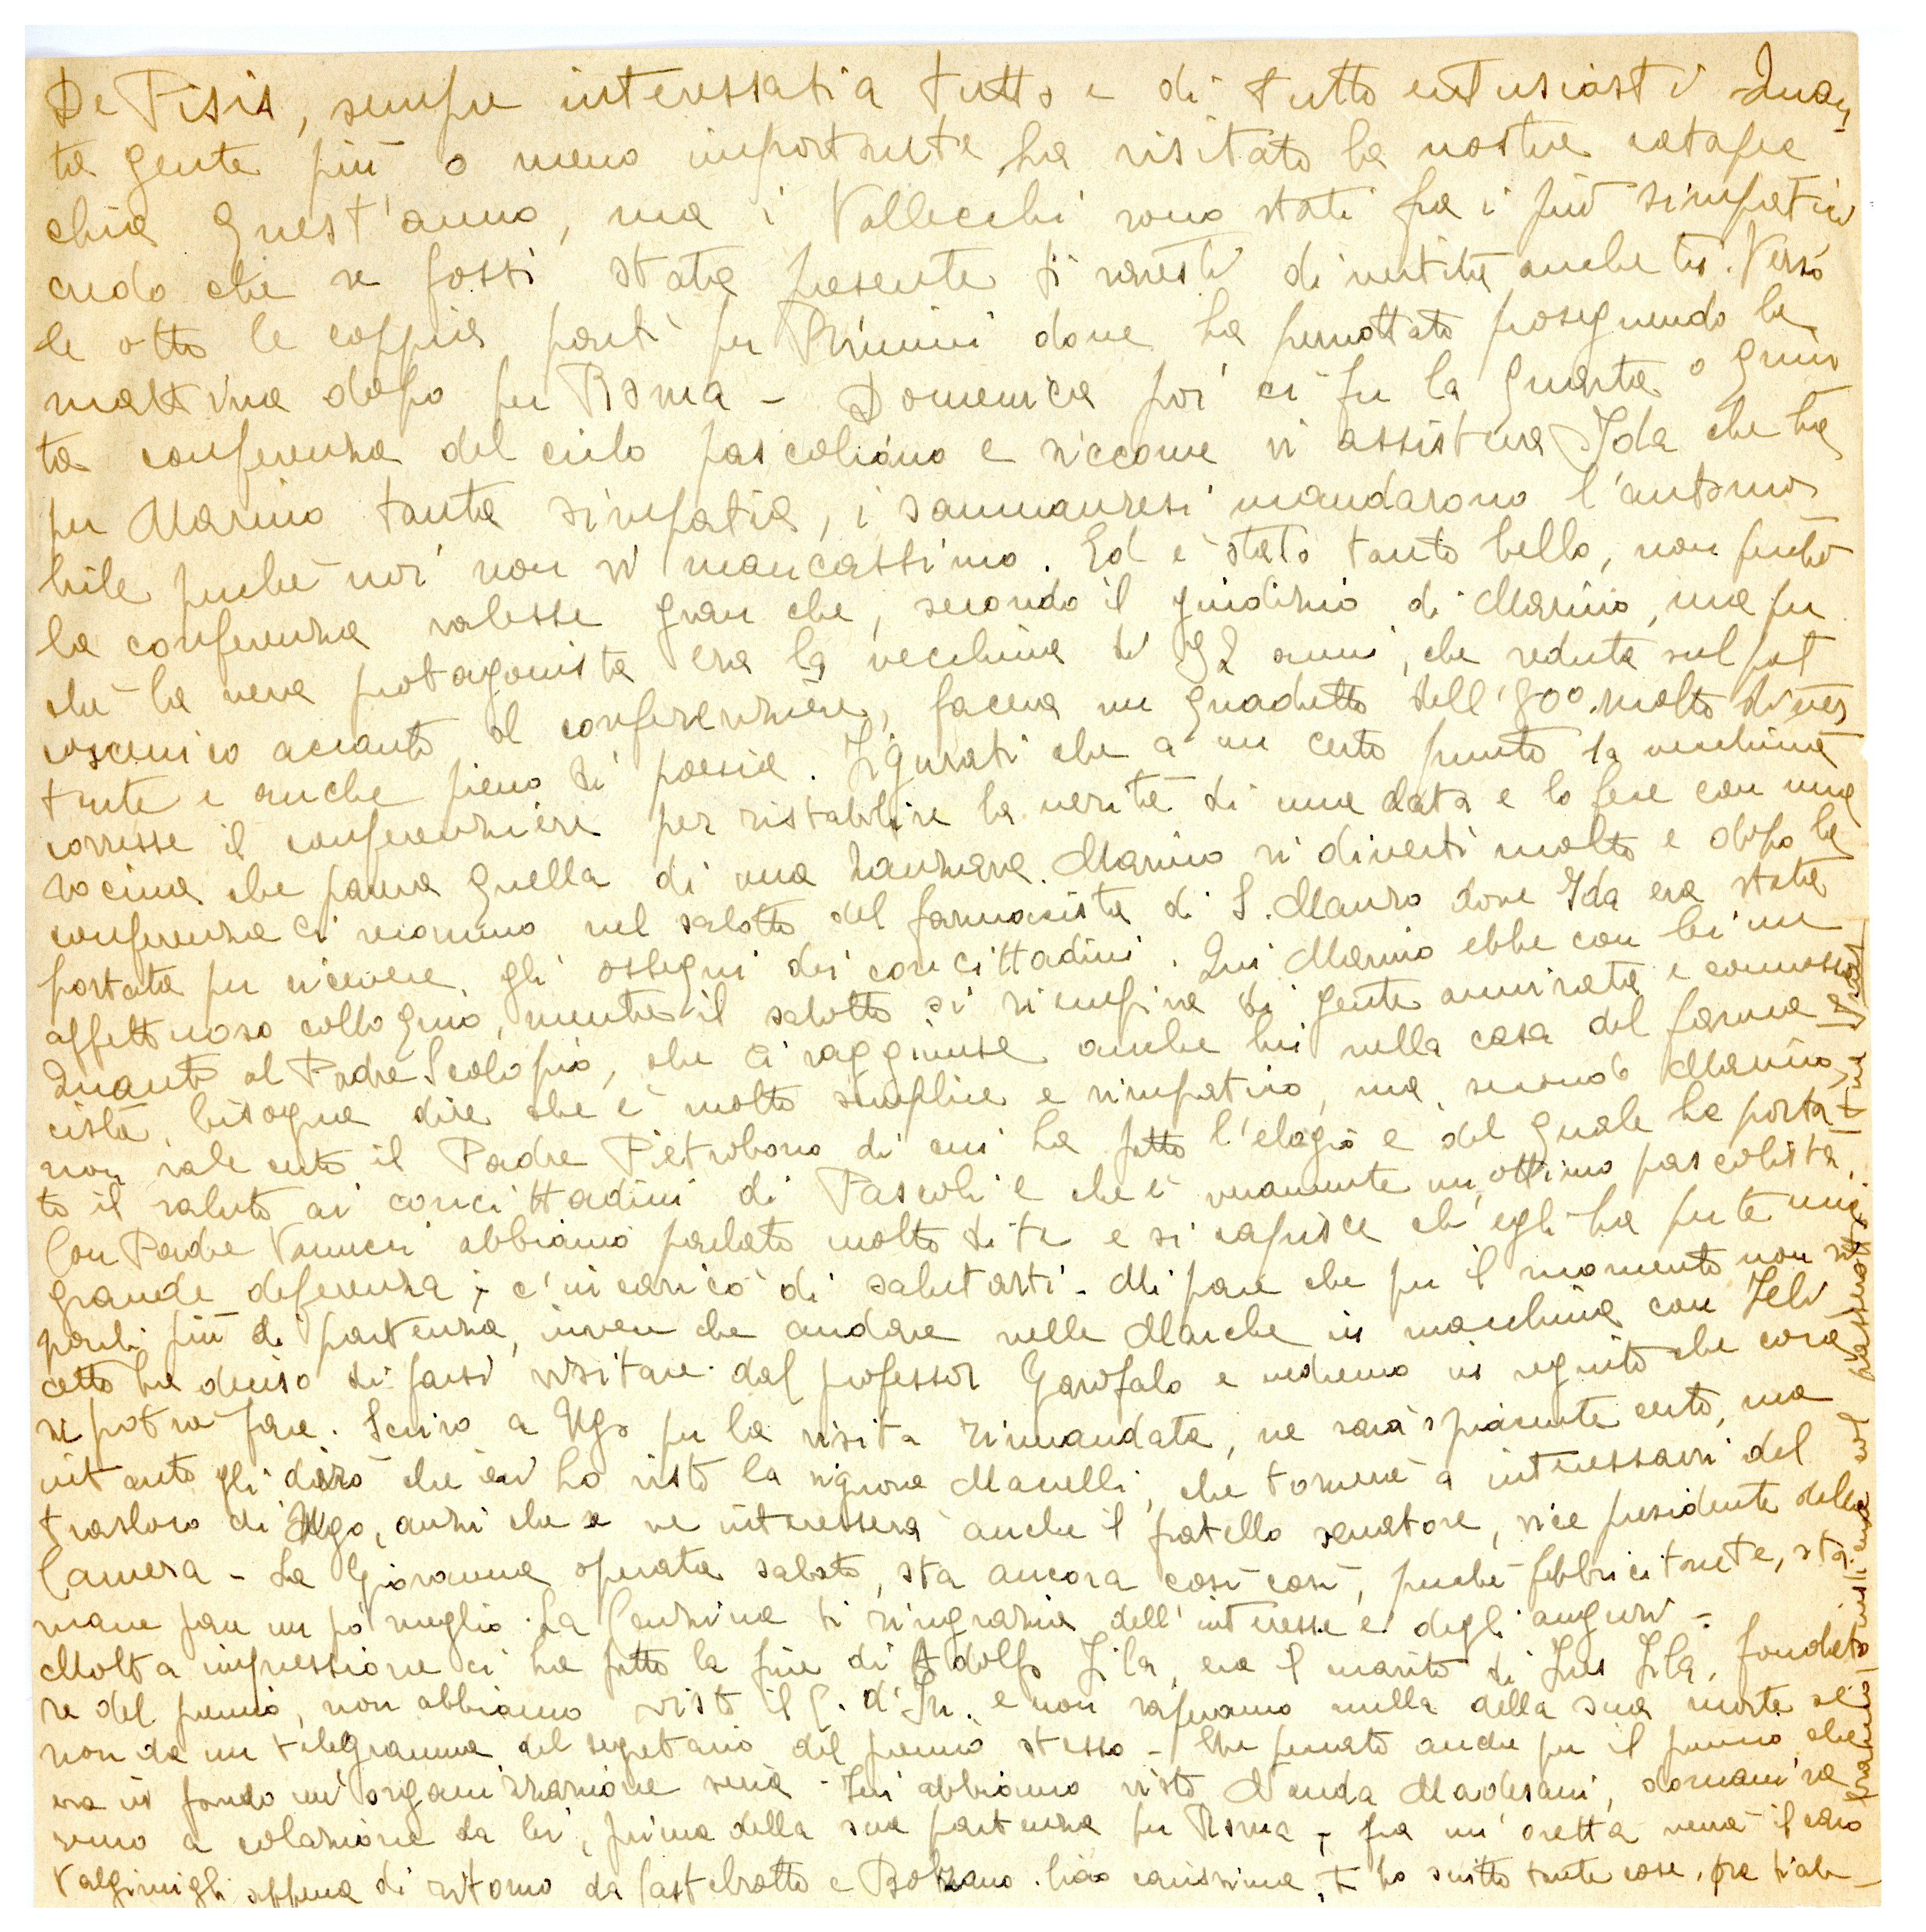 De Pisis, sempre interessati a tutto e di tutto entusiasti Quan-
ta gente più o meno importante ha visitato la nostra catapec
chia quest'anno, ma i Vallecchi sono stati fra i più simpatici
credo che se fossi stata presente ti saresti divertita anche tu. Verso
le otto la coppia partì per Rimini dove ha pernottato proseguendo la
mattina dopo per Roma - Domenica poi ci fu la quarta o quin
ta conferenza del ciclo pascoliano e siccome vi assisteva Ida che ha
per Marino tanta simpatia, i sammauresi mandarono l'automo
bile perchè noi non vi mancassimo. Ed è stato tanto bello, non perchè
la conferenza valesse gran che, secondo il giudizio di Marino, ma per
chè la vera protagonista era la vecchina di 92 anni, che seduta sul pal
coscenico accanto al conferenziere, faceva un quadretto dell'800 molto diver
tente e anche pieno di poesia. Figurati che a un certo punto la vecchina
corresse il conferenziere per ristabilire la verità di una data e lo fece con una
vocina che pareva quella di una zanzara. Marino si divertì molto e dopo la
conferenza ci recammo nel salotto del farmacista di S. Mauro dove Ida era stata
portata per ricevere gli ossequi dei concittadini. Qui Marino ebbe con lei un
affettuoso colloquio, mentre il salotto si riempiva di gente ammirata e commossa
Quanto al Padre Scolopio, che ci raggiunse anche lui nella casa del farma
cista, bisogna dire che è molto semplice e simpatico, ma, secondo Marino,
non vale certo il Padre Pietrobono di cui ha fatto l'elogio e del quale ha porta
to il saluto ai concittadini di Pascoli e che è veramente un ottimo pascolista.
Con Padre Vannucci abbiamo parlato molto di te e si capisce ch'egli ha per te una
grande deferenza; c'incaricò di salutarti. Mi pare che per il momento non si
parli più di partenza, invece che andare nelle Marche in macchina con Feli
cetto ha deciso di farsi visitare dal professor Garofalo e vedremo in seguito che cosa
si potrà fare. Scrivo a Ugo per la visita rimandata, ne sarà spiacente certo, ma
intanto gli dirò che ieri ho visto la signora Macrelli, che tornerà a interessarsi del
trasloco di Ugo, anzi che se ne interesserà anche il fratello senatore, vice presidente della
Camera - La Giovanna operata sabato, sta ancora così così, perchè febbricitante, sta
mane pare un pò meglio. La Cenzina ti ringrazia dell'interesse e degli auguri -
Molta impressione ci ha fatto la fine di Adolfo Fila, era il marito di Ines Fila, fondato
re del premio, non abbiamo visto il C. d'In. e non sapevamo nulla della sua morte se
non da un telegramma del segretario del premio stesso - Che peccato anche per il premio che
era in fondo un'organizzazione seria - Ieri abbiamo visto Nanda Madesani, domani sa
remo a colazione da lei, prima della sua partenza per Roma; fra un'oretta verrà il caro
Valgimigli appena di ritorno da Castelrotto e Bolzano. Ciao carissima, t'ho scritto tante cose, fra ti ab-